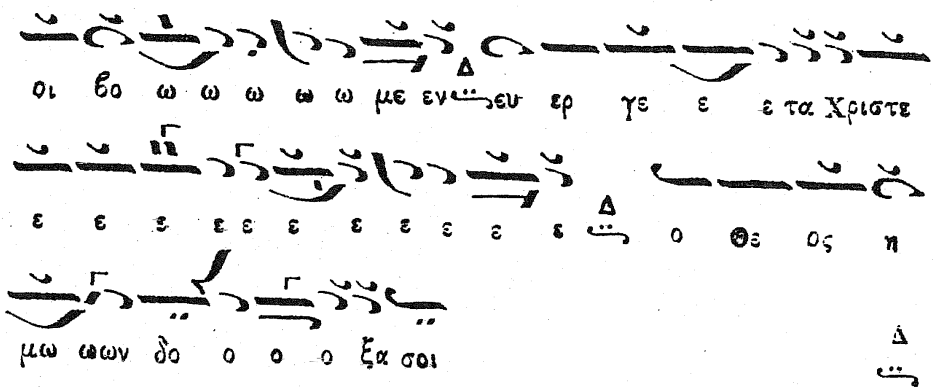 οι βο ω ω ω ω ω με εν Δ ευ ερ γε ε ε τα Χριστε
ε ε ε ε ε ε ε ε ε ε ε Δ ο Θε ος η
μω ωων δο ο ο ο ξα σοι Δ